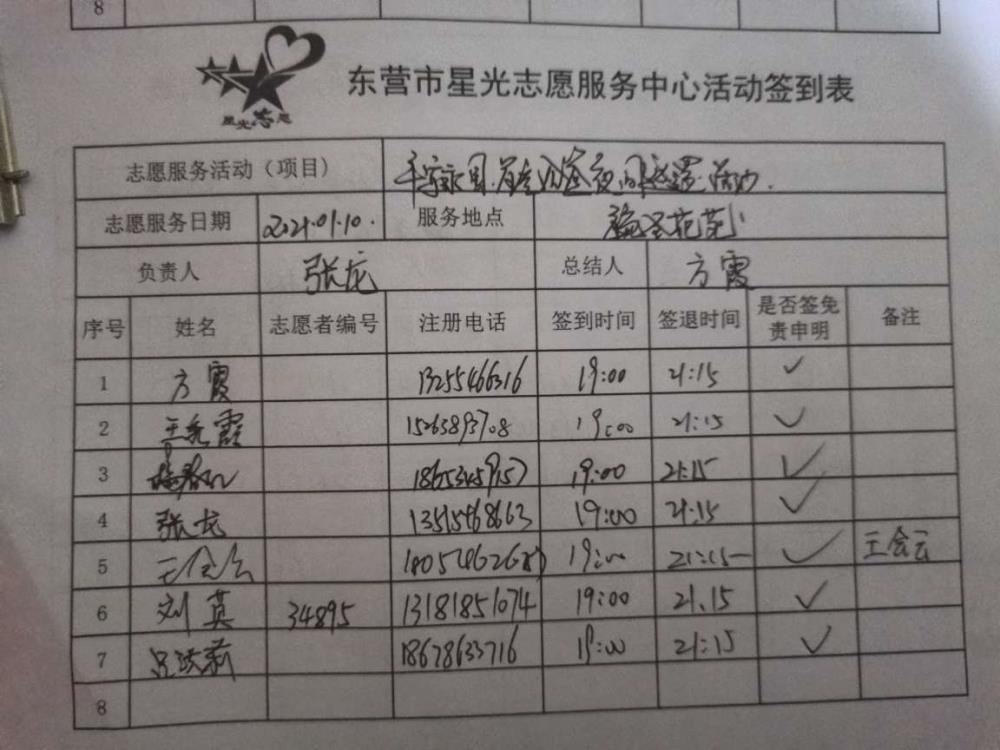 8
星光志愿
东营市星光志愿服务中心活动签到表
志愿服务活动（项目） 夜间巡逻活动.
志愿服务日期 2021.01.10. 服务地点 花苑
负责人 张龙 总结人 方霞
序号 姓名 志愿者编号 注册电话 签到时间 签退时间 是否签免责申明 备注
1 方霞 13255466316 19:00 21:15 ✓
2 王 霞 15263893708 19:00 21:15 ✓
3 19:00 21:15 ✓
4 张龙 13515468663 19:00 21:15 ✓
5 王会云 19:00 21:15 ✓ 王会云
6 刘英 34895 13181851074 19:00 21.15 ✓
7 吕 莉 18678633716 19:00 21:15 ✓
8